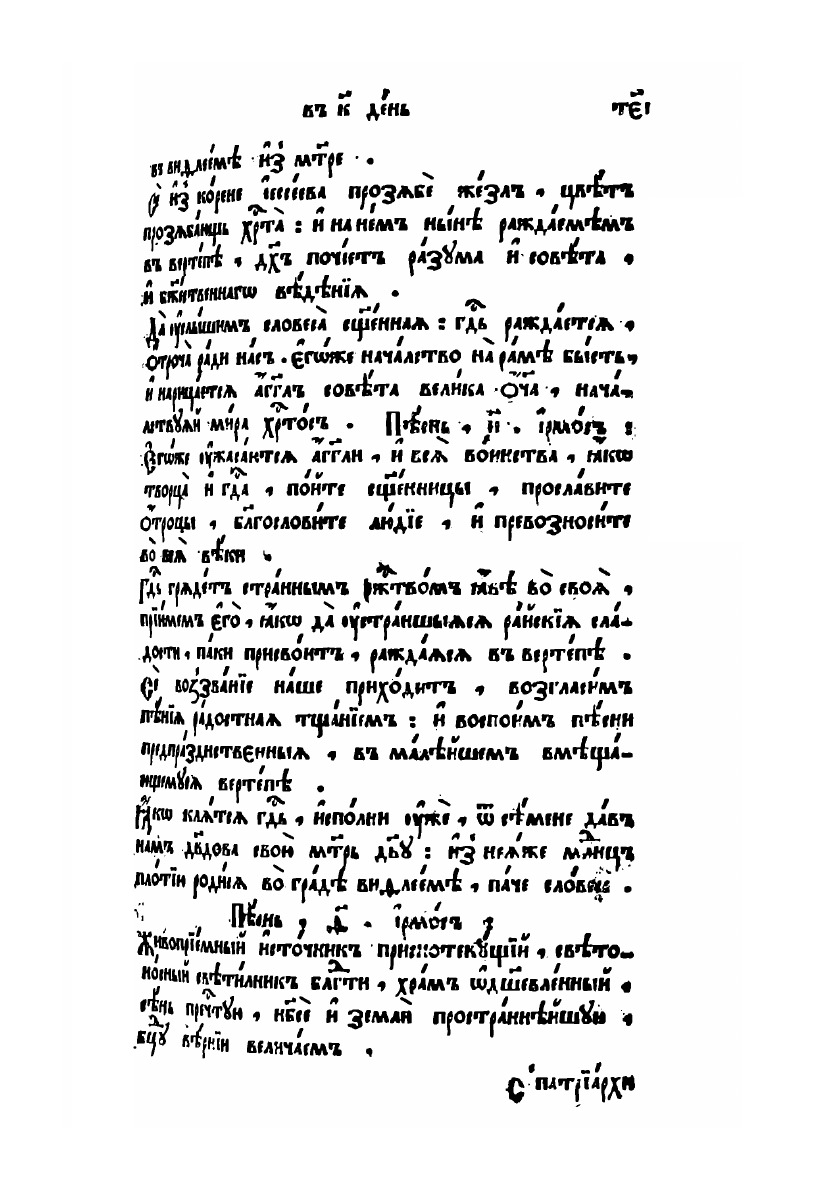 въ к҃ де́нь тє҃і
въ виѳлее́мѣ и҆з̾ мт҃ре .
Ѿ и҆з̾ ко́рене і҆ессе́ева прозѧбѐ же́злъ , цвѣ́тъ
прозѧба́ющь хрⷭ҇та̀ : и҆ на не́мъ ны́нѣ ражда́емѣмъ
въ верте́пѣ , дх҃ъ почі́етъ ра́зꙋма и҆ совѣ́та ,
и҆ бж҃е́ственнагѡ вѣ́дѣнїѧ .
Да̀ ᲂу҆слы́шимъ словеса̀ сщ҃е́ннаѧ : гдⷭ҇ь ражда́етсѧ ,
ѻ҆троча̀ ра́ди на́съ . є҆гѡ́же нача́лство на ра́мѣ бы́сть ,
и҆ нарица́етсѧ а҆́гг҃лъ совѣ́та вели́ка ѻ҆ц҃а̀ , нача́-
лствꙋѧй ми́ра хрⷭ҇то́съ . Пѣ́снь , и҃ . і҆рмо́съ :
Є҆гѡ́же ᲂу҆жаса́ютсѧ а҆́гг҃ли , и҆ всѧ̀ во́инства , ꙗ҆́кѡ
творца̀ и҆ гдⷭ҇а , по́йте сщ҃е́нницы , просла́вите
ѻ҆́троцы , бл҃гослови́те лю́дїе , и҆ превозноси́те
во всѧ̀ вѣ́ки .
Гдⷭ҇ь грѧде́тъ стра́ннымъ рж҃тво́мъ ꙗ҆́вѣ во своѧ̀ ,
прїи́мемъ є҆го̀ , ꙗ҆́кѡ да̀ ᲂу҆стра́ншыѧсѧ ра́йскїѧ сла́-
дости , па́ки присво́итъ , ражда́ѧсѧ въ верте́пѣ .
Сѐ воззва́нїе на́ше прихо́дитъ , возгласи́мъ
пѣ́нїѧ ра́достнаѧ тща́нїемъ : и҆ воспои́мъ пѣ́сни
предпра́зднственныѧ , въ малѣ́йшемъ вмѣща́-
ющемꙋсѧ верте́пѣ .
Ꙗ҆́кѡ клѧ́тсѧ гдⷭ҇ь , и҆спо́лни ᲂу҆жѐ , ѿ сѣ́мене да́въ
на́мъ дв҃дова свою̀ мт҃рь дв҃ꙋ : и҆з̾ неѧ́же млⷣнцъ
пло́тїи роди́сѧ во гра́дѣ виѳлее́мѣ , па́че сло́весѐ .
Пѣ́снь , ѳ҃ . і҆рмо́съ ,
Живопрїе́мный и҆сто́чникъ присноте́кꙋщїй , свѣто-
но́сный свѣти́лникъ блгⷣти , хра́мъ ѡ҆дш҃евле́нный ,
сѣ́нь пречⷭ҇тꙋю , нб҃сѐ и҆ земли̇̀ простра́ннѣйшꙋю ,
бцⷣꙋ вѣ́рнїи велича́емъ .
С патрїа́рхи